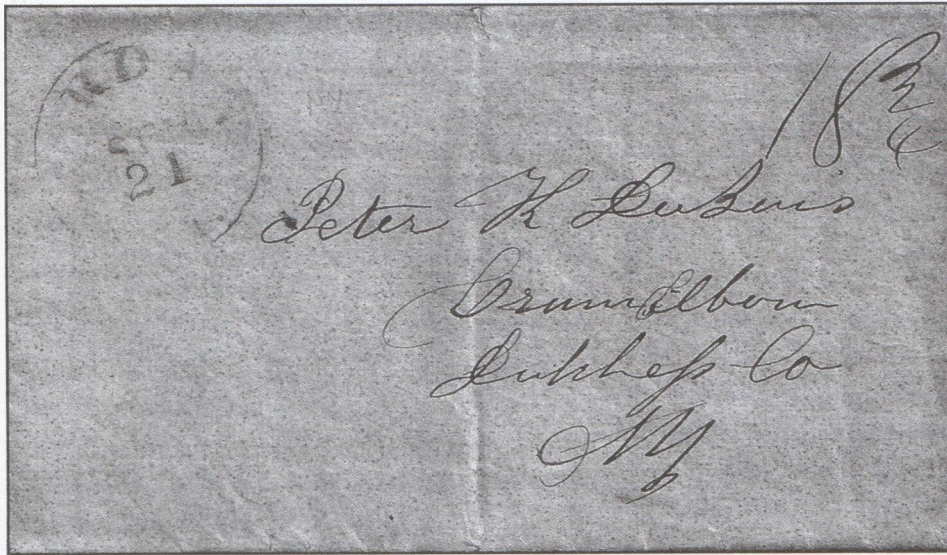 18 3/4
21
Peter K DuBois
CrumElbow
Dutchess Co
NY